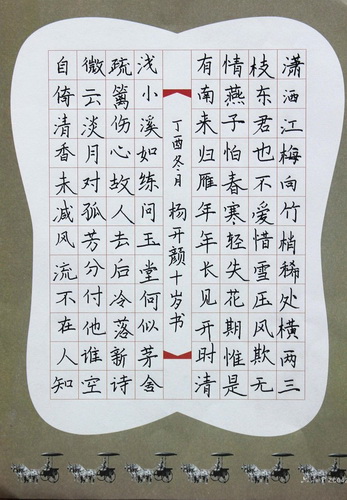 潇洒江梅向竹梢稀处横两三
枝东君也不爱惜雪压风欺无
情燕子怕春寒轻失花期惟是
有南来归雁年年长见开时清
丁酉冬月 杨开颜十岁书
浅小溪如练问玉堂何似茅舍
疏篱伤心故人去后冷落新诗
微云淡月对孤芳分付他谁空
自倚清香未减风流不在人知